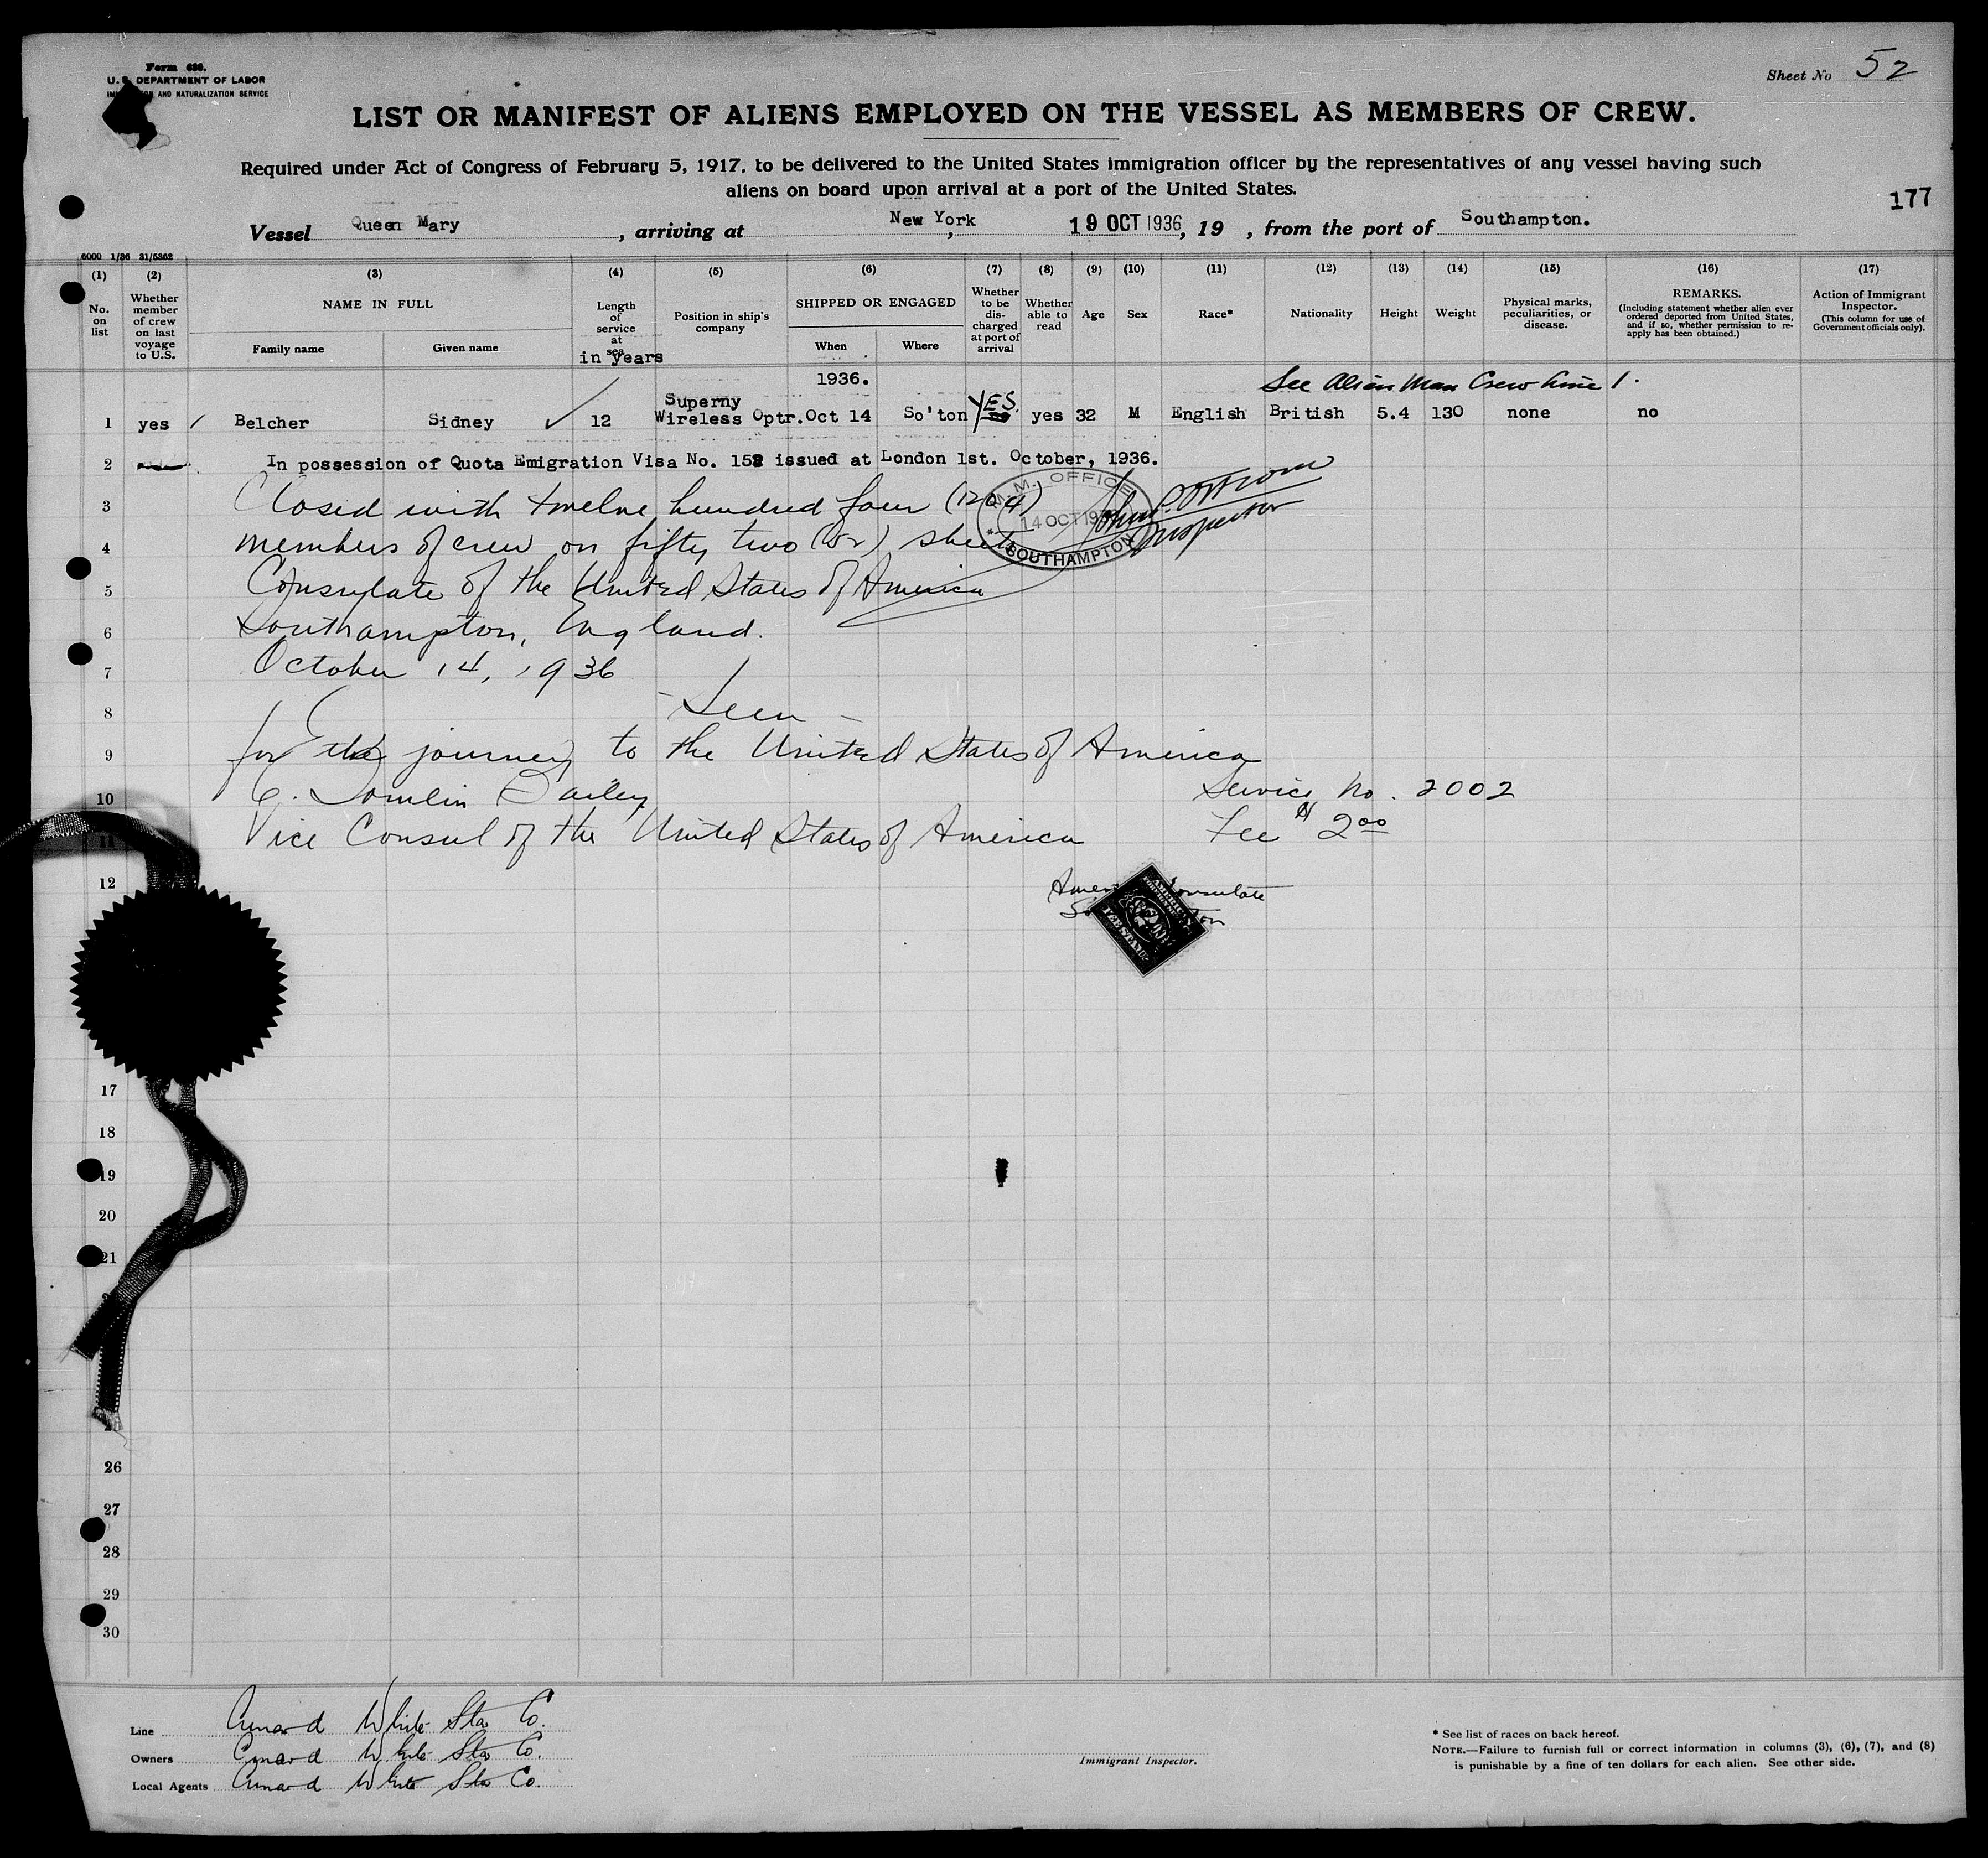 Form 689.
U. S. DEPARTMENT OF LABOR
AND NATURALIZATION SERVICE
Sheet No 52
LIST OR MANIFEST OF ALIENS EMPLOYED ON THE VESSEL AS MEMBERS OF CREW.
Required under Act of Congress of February 5, 1917, to be delivered to the United States immigration officer by the representatives of any vessel having such
aliens on board upon arrival at a port of the United States.
177
Vessel Queen Mary, arriving at New York, 19 OCT 1936, 19 , from the port of Southampton.
6000 1/36 31/5362
(1) (2) (3) (4) (5) (6) (7) (8) (9) (10) (11) (12) (13) (14) (15) (16) (17)
No. on list
Whether member of crew on last voyage to U.S.
NAME IN FULL
Family name Given name
Length of service at sea
in years
Position in ship's company
SHIPPED OR ENGAGED
When Where
Whether to be discharged at port of arrival
Whether able to read
Age
Sex
Race*
Nationality
Height
Weight
Physical marks, peculiarities, or disease.
REMARKS.
(Including statement whether alien ever ordered deported from United States, and if so, whether permission to reapply has been obtained.)
Action of Immigrant Inspector.
(This column for use of Government officials only).
1936.
See Alien Man Crew line 1.
1 yes Belcher Sidney 12 Superny Wireless Optr. Oct 14 So'ton YES. no yes 32 M English British 5.4 130 none no
2 In possession of Quota Emigration Visa No. 152 issued at London 1st. October, 1936.
3 Closed with twelve hundred four (1204)
4 members of crew on fifty two (52) sheets
M.M. OFFICE
14 OCT 19
SOUTHAMPTON
Inspector
5 Consulate of the United States of America
6 Southampton, England.
7 October 14, 1936
8 - Seen -
9 for the journey to the United States of America
10 E. Tomlin Bailey Service No. 2002
11 Vice Consul of the United States of America Fee $2.00
12
American Consulate
AMERICAN
FEE STAMP
17
18
19
20
21
26
27
28
29
30
Line Cunard White Star Co.
Owners Cunard White Star Co.
Local Agents Cunard White Star Co.
Immigrant Inspector.
* See list of races on back hereof.
NOTE.—Failure to furnish full or correct information in columns (3), (6), (7), and (8)
is punishable by a fine of ten dollars for each alien. See other side.